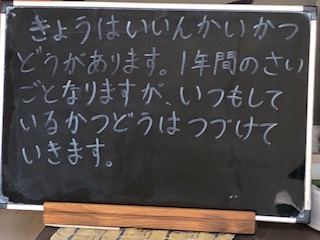 きょうはいいんかいかつ
どうがあります。1年間のさい
ごとなりますが、いつもして
いるかつどうはつづけて
いきます。